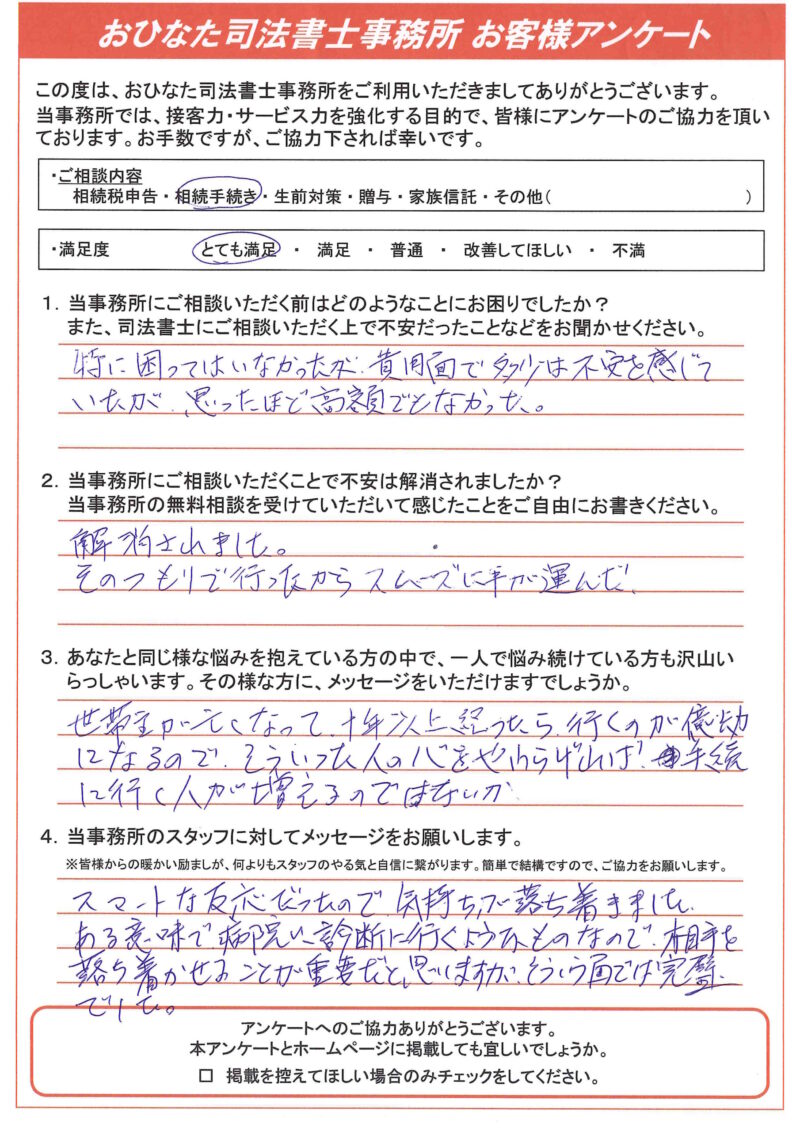 おひなた司法書士事務所 お客様アンケート
この度は、おひなた司法書士事務所をご利用いただきましてありがとうございます。
当事務所では、接客力・サービス力を強化する目的で、皆様にアンケートのご協力を頂い
ております。お手数ですが、ご協力下されば幸いです。
・ご相談内容
相続税申告・相続手続き・生前対策・贈与・家族信託・その他( )
・満足度 とても満足 ・ 満足 ・ 普通 ・ 改善してほしい ・ 不満
1. 当事務所にご相談いただく前はどのようなことにお困りでしたか？
また、司法書士にご相談いただく上で不安だったことなどをお聞かせください。
特に困ってはいなかったが、費用面で多少は不安を感じて
いたが、思ったほど高額でもなかった。
2. 当事務所にご相談いただくことで不安は解消されましたか？
当事務所の無料相談を受けていただいて感じたことをご自由にお書きください。
解消されました。
そのつもりで行ったからスムーズに事が運んだ。
3. あなたと同じ様な悩みを抱えている方の中で、一人で悩み続けている方も沢山い
らっしゃいます。その様な方に、メッセージをいただけますでしょうか。
世帯主が亡くなって、十年以上経ったら、行くのが億劫
になるので、そういった人の心をやわらげれば、手続
に行く人が増えるのではないか
4. 当事務所のスタッフに対してメッセージをお願いします。
※皆様からの暖かい励ましが、何よりもスタッフのやる気と自信に繋がります。簡単で結構ですので、ご協力をお願いします。
スマートな反応だったので気持ちが落ち着きました。
ある意味で病院に診断に行くようなものなので、相手を
落ち着かせることが重要だと思いますが、そういう面では完璧
でした。
アンケートへのご協力ありがとうございます。
本アンケートとホームページに掲載しても宜しいでしょうか。
□ 掲載を控えてほしい場合のみチェックをしてください。